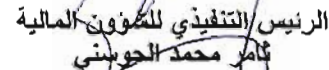 الرئيس التنفيذي للشؤون المالية
ثامر محمد الحوسني